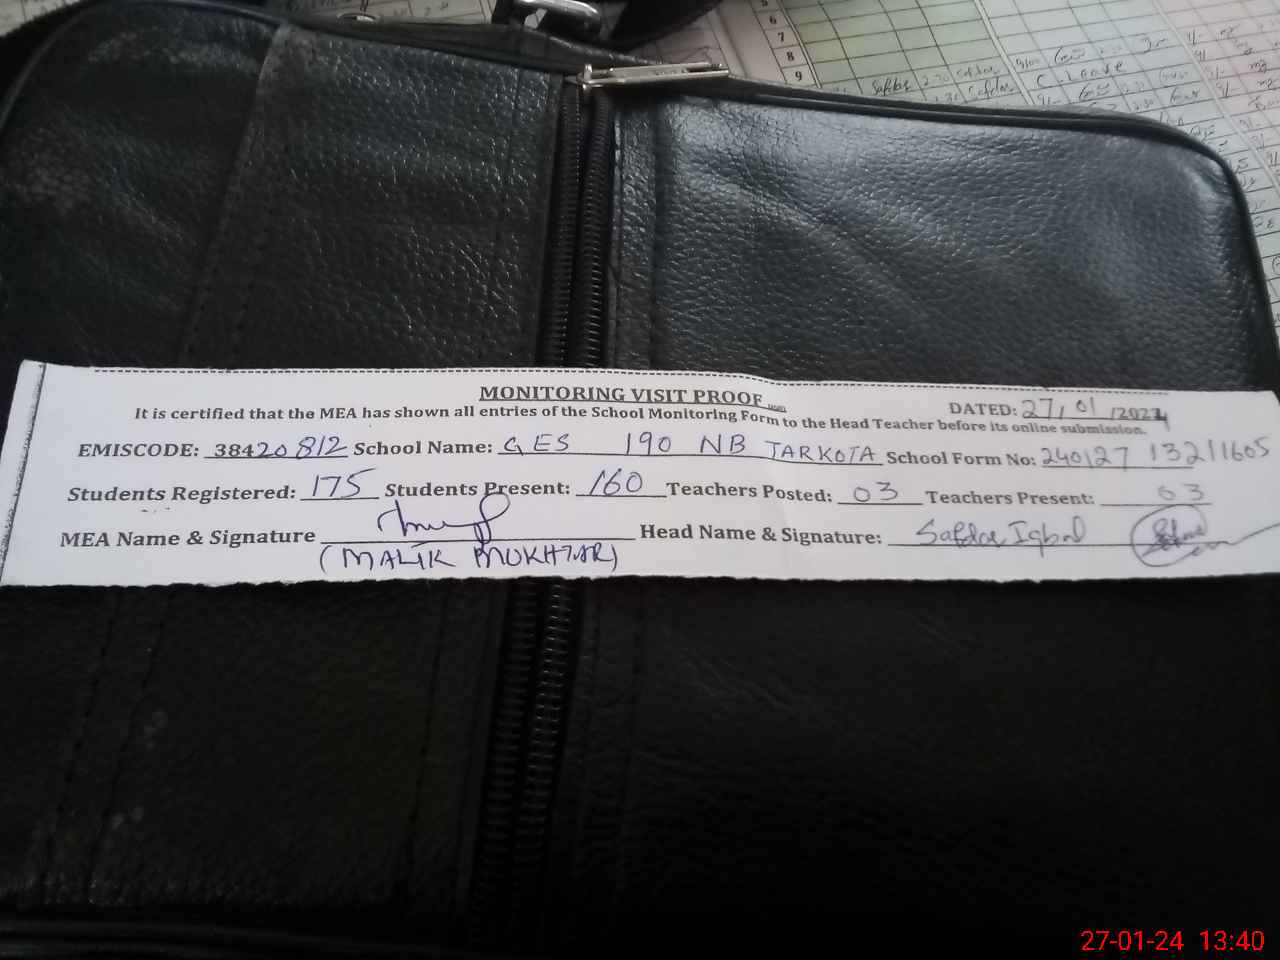 5
6
7
8
9
Safdar 2.30 Safdar
C. Leave
MONITORING VISIT PROOF
DATED: 27/01/2024
It is certified that the MEA has shown all entries of the School Monitoring Form to the Head Teacher before its online submission.
EMISCODE: 38420812 School Name: GES 190 NB TARKOTA School Form No: 240127 13211605
Students Registered: 175 Students Present: 160 Teachers Posted: 03 Teachers Present: 03
MEA Name & Signature Head Name & Signature: Safdar Iqbal
(MALIK MUKHTAR)
27-01-24 13:40